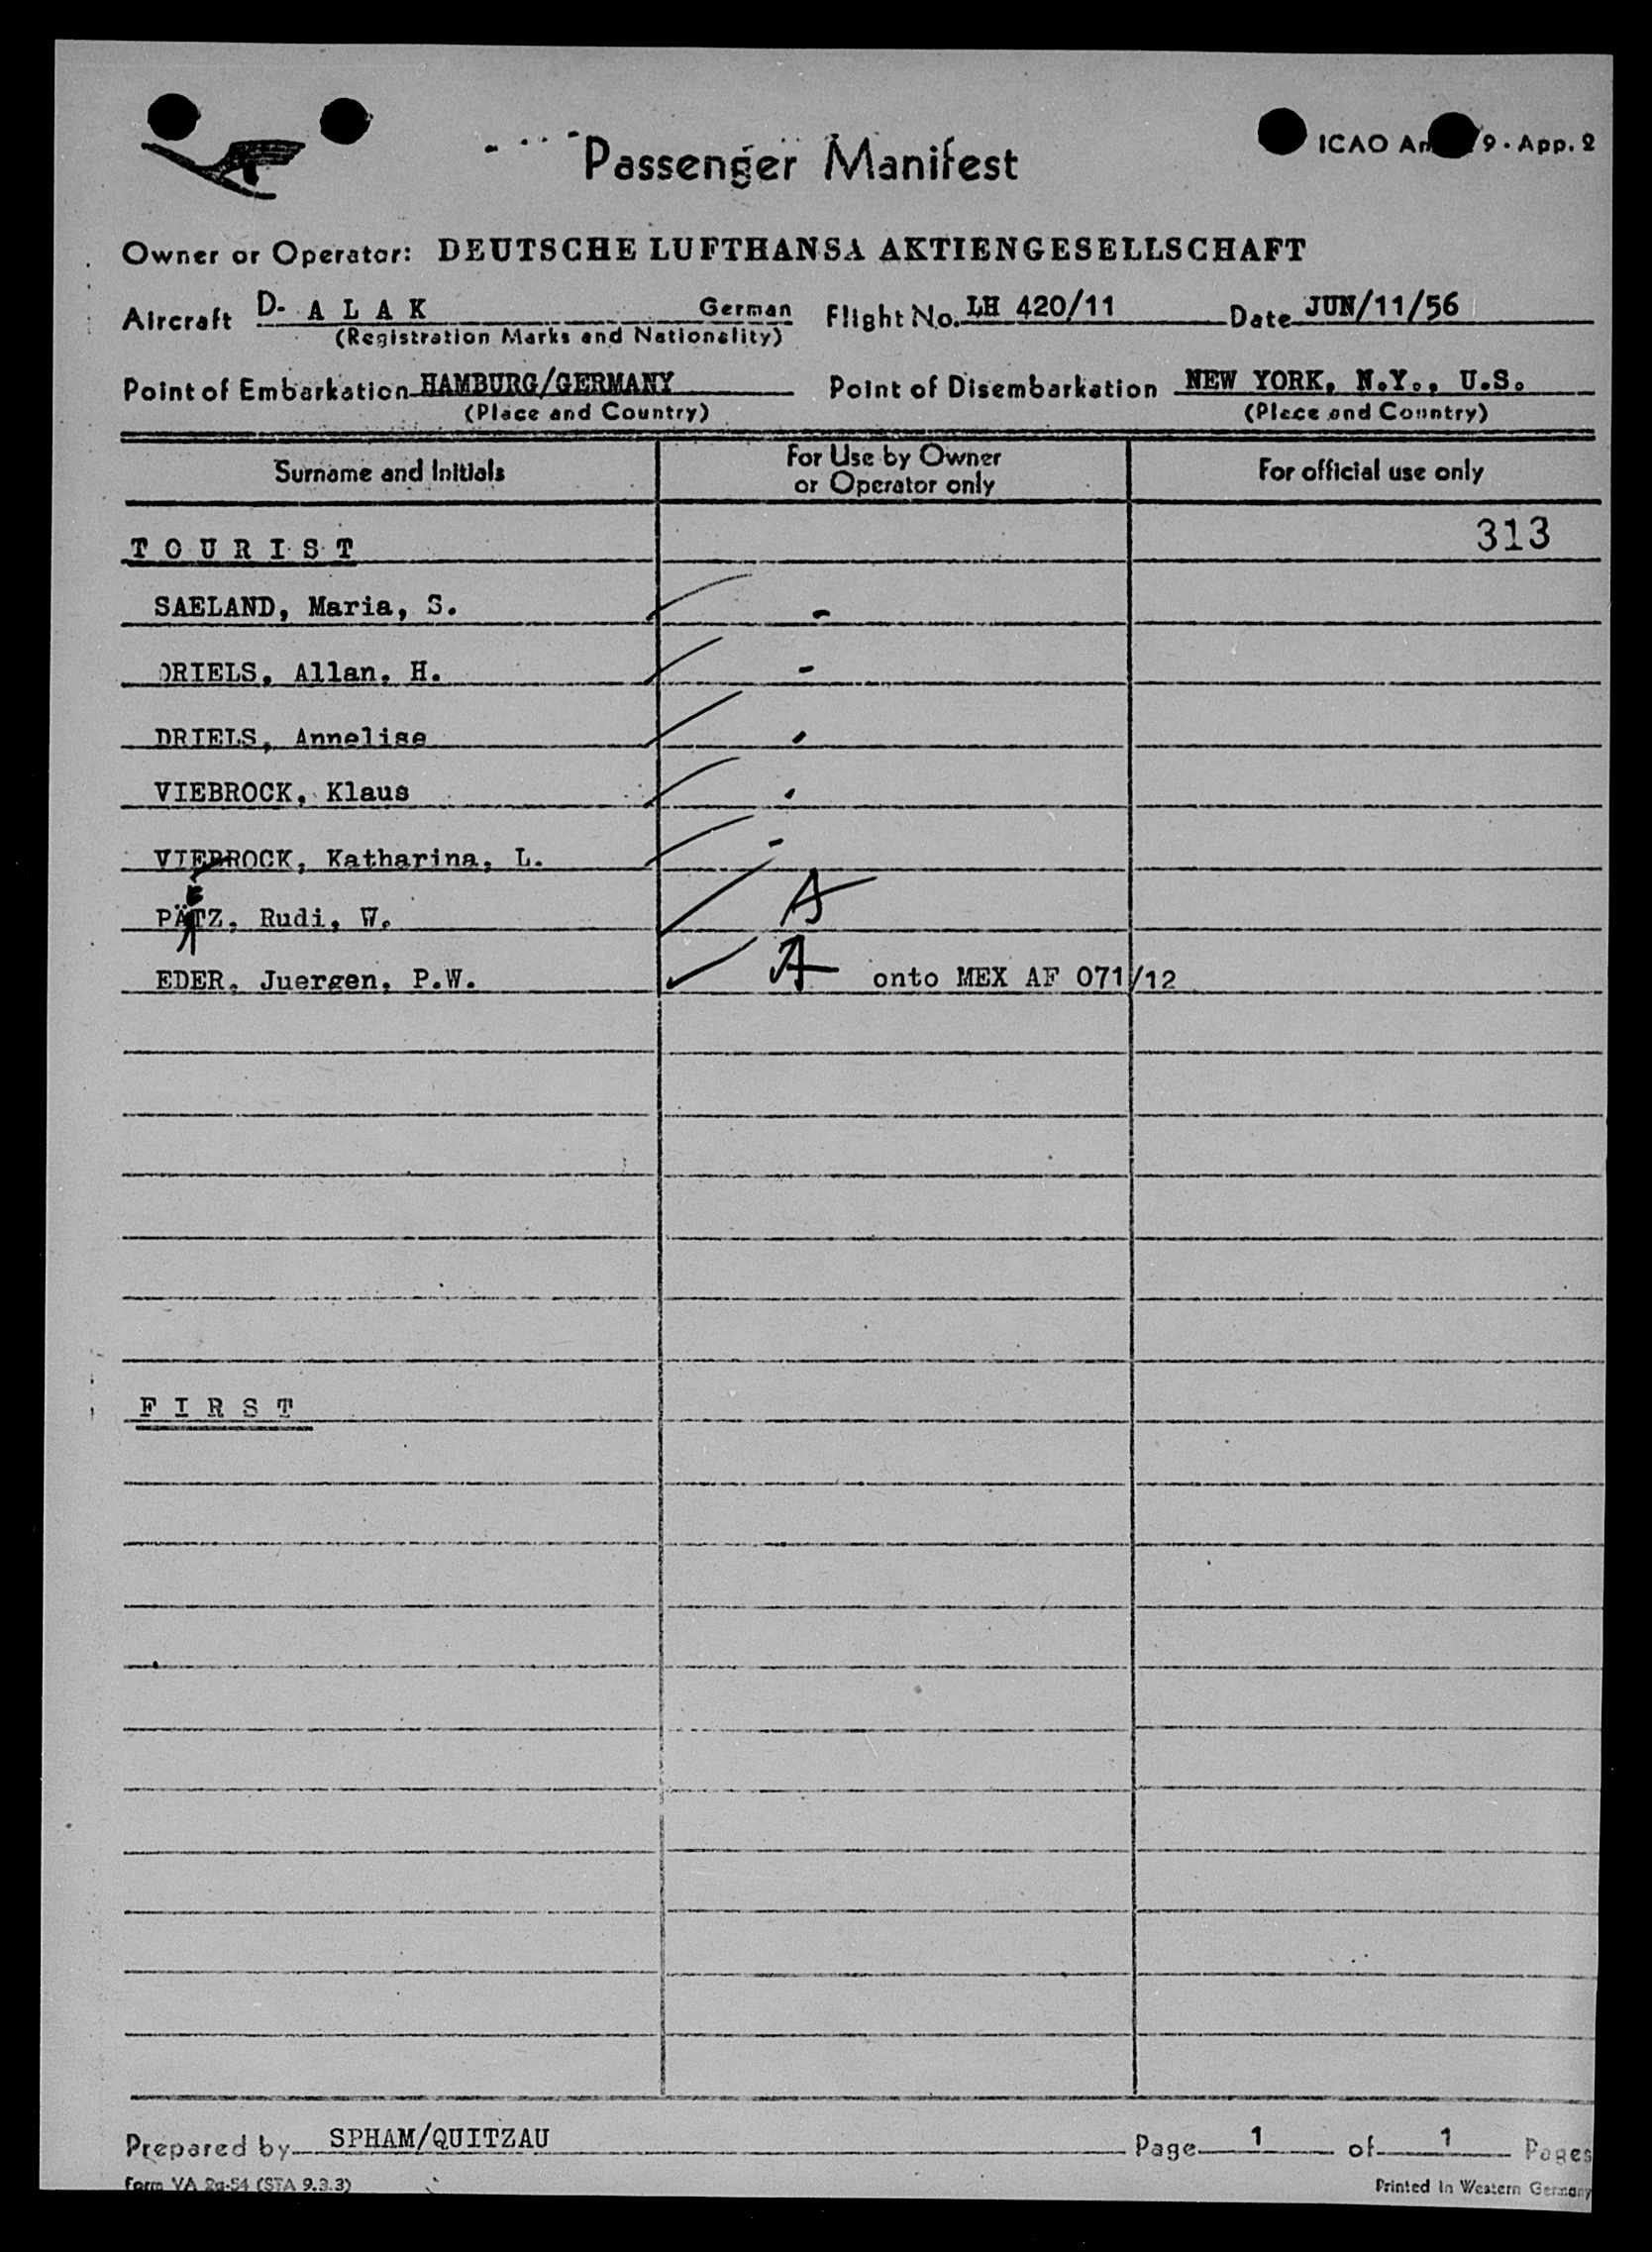 Passenger Manifest
ICAO An 9 - App. 2
Owner or Operator: DEUTSCHE LUFTHANSA AKTIENGESELLSCHAFT
Aircraft D- A L A K German Flight No. LH 420/11 Date JUN/11/56
(Registration Marks and Nationality)
Point of Embarkation HAMBURG/GERMANY Point of Disembarkation NEW YORK, N.Y., U.S.
(Place and Country) (Place and Country)
Surname and Initials For Use by Owner or Operator only For official use only
T O U R I S T 313
SAELAND, Maria, S. -
DRIELS, Allan, H. -
DRIELS, Annelise
VIEBROCK, Klaus
VIEBROCK, Katharina, L. -
E
PÄTZ, Rudi, W. A
EDER, Juergen, P.W. A onto MEX AF 071/12
F I R S T
Prepared by SPHAM/QUITZAU Page 1 of 1 Pages
Form VA 2a-54 (STA 9.3.3) Printed in Western Germany